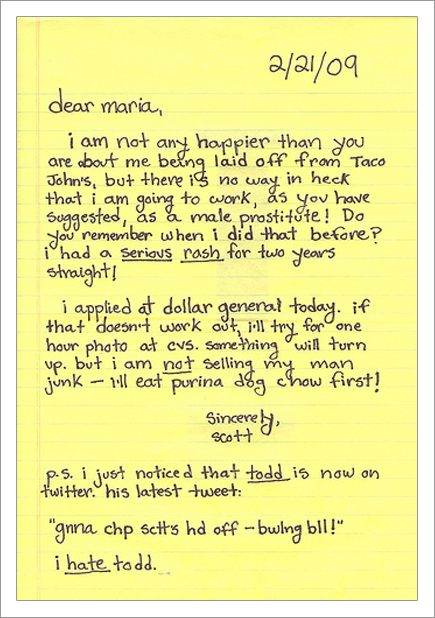 2/21/09
dear maria,
i am not any happier than you
are about me being laid off from Taco
John's, but there is no way in heck
that i am going to work, as you have
suggested, as a male prostitute! Do
you remember when i did that before?
i had a serious rash for two years
straight!
i applied at dollar general today. if
that doesn't work out, i'll try for one
hour photo at cvs. something will turn
up. but i am not selling my man
junk – i'll eat purina dog chow first!
Sincerely,
scott
p.s. i just noticed that todd is now on
twitter. his latest tweet:
"gnna chp sctt's hd off – bwlng bll!"
i hate todd.